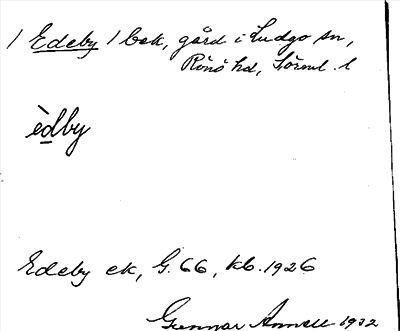 / Edeby / bek, gård i Ludgo sn,
Rönö hd, Sörml. l
èdby
Edeby ek, G. 66, kb. 1926
Gunnar 1932